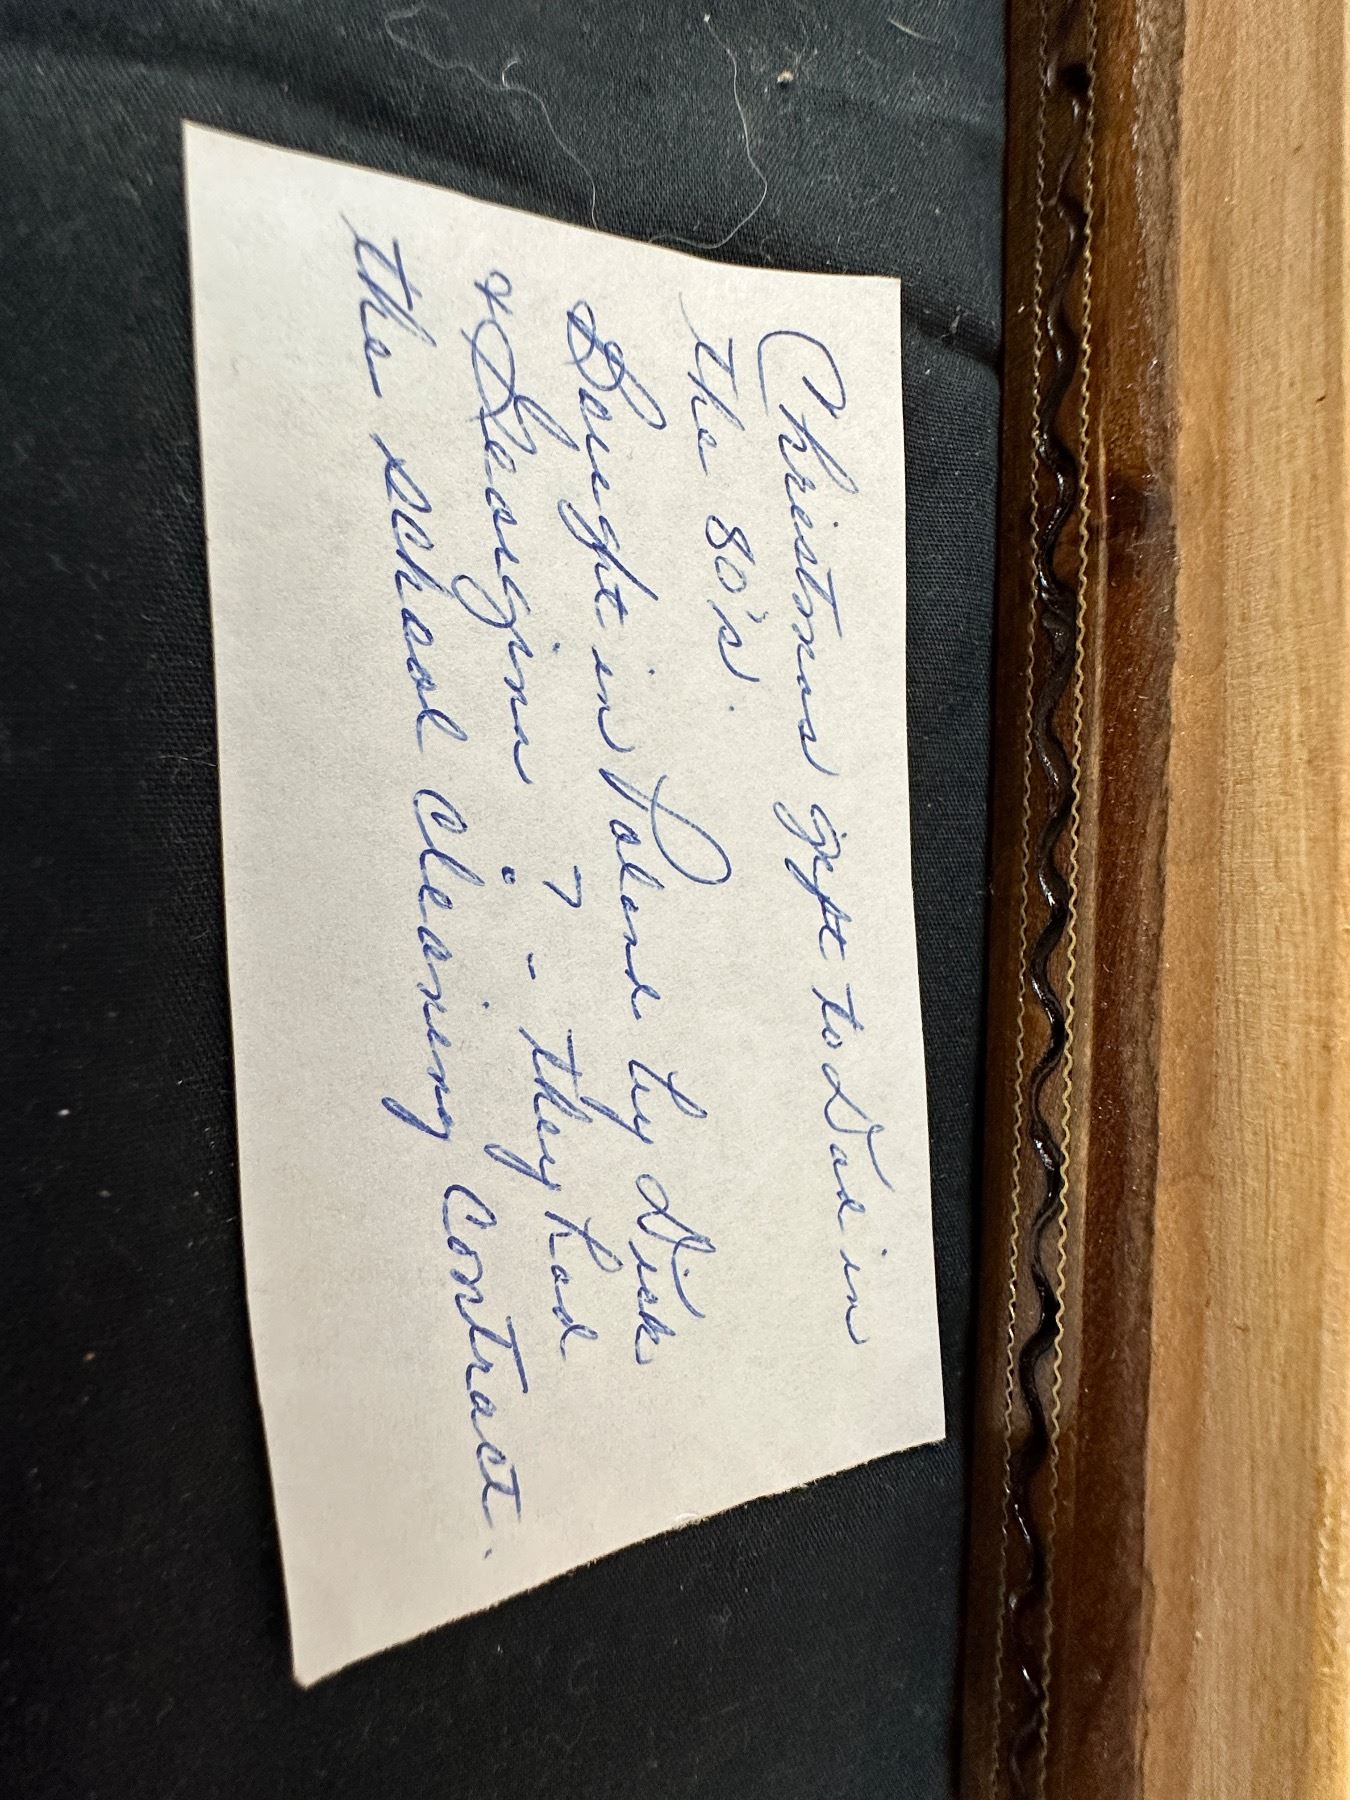 Christmas gift to Dad in
the 80's.
Bought in Poland by Dick
& Georgina ? - they had
the school cleaning contract.